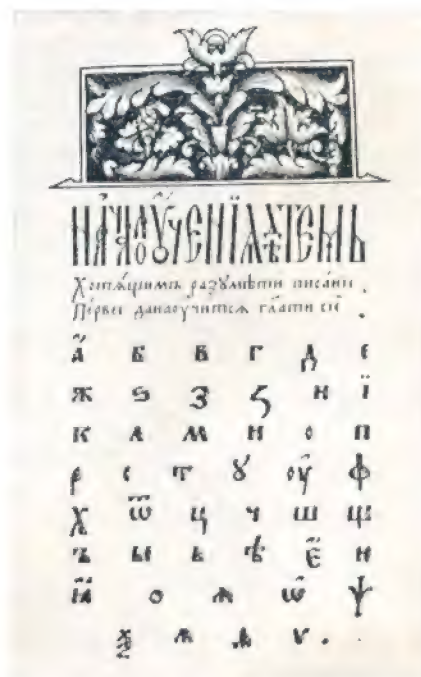 НАЧАЛО УЧЕНІЯ ХѢТЕМЪ
Хотѧщимъ разꙋмѣти писані
Первее да наоучитсѧ гл҃ати сїѐ
А Б В Г Д Є
Ж Ѕ З Ҁ И Ї
К Л М Н О П
Р С Т Ꙋ ОУ Ф
Х Ѿ Ц Ч Ш Щ
Ъ Ы Ь Ѣ Є
Ꙗ О Ѫ Ѡ Ѱ
Ѯ Ѫ Ѧ Ѵ